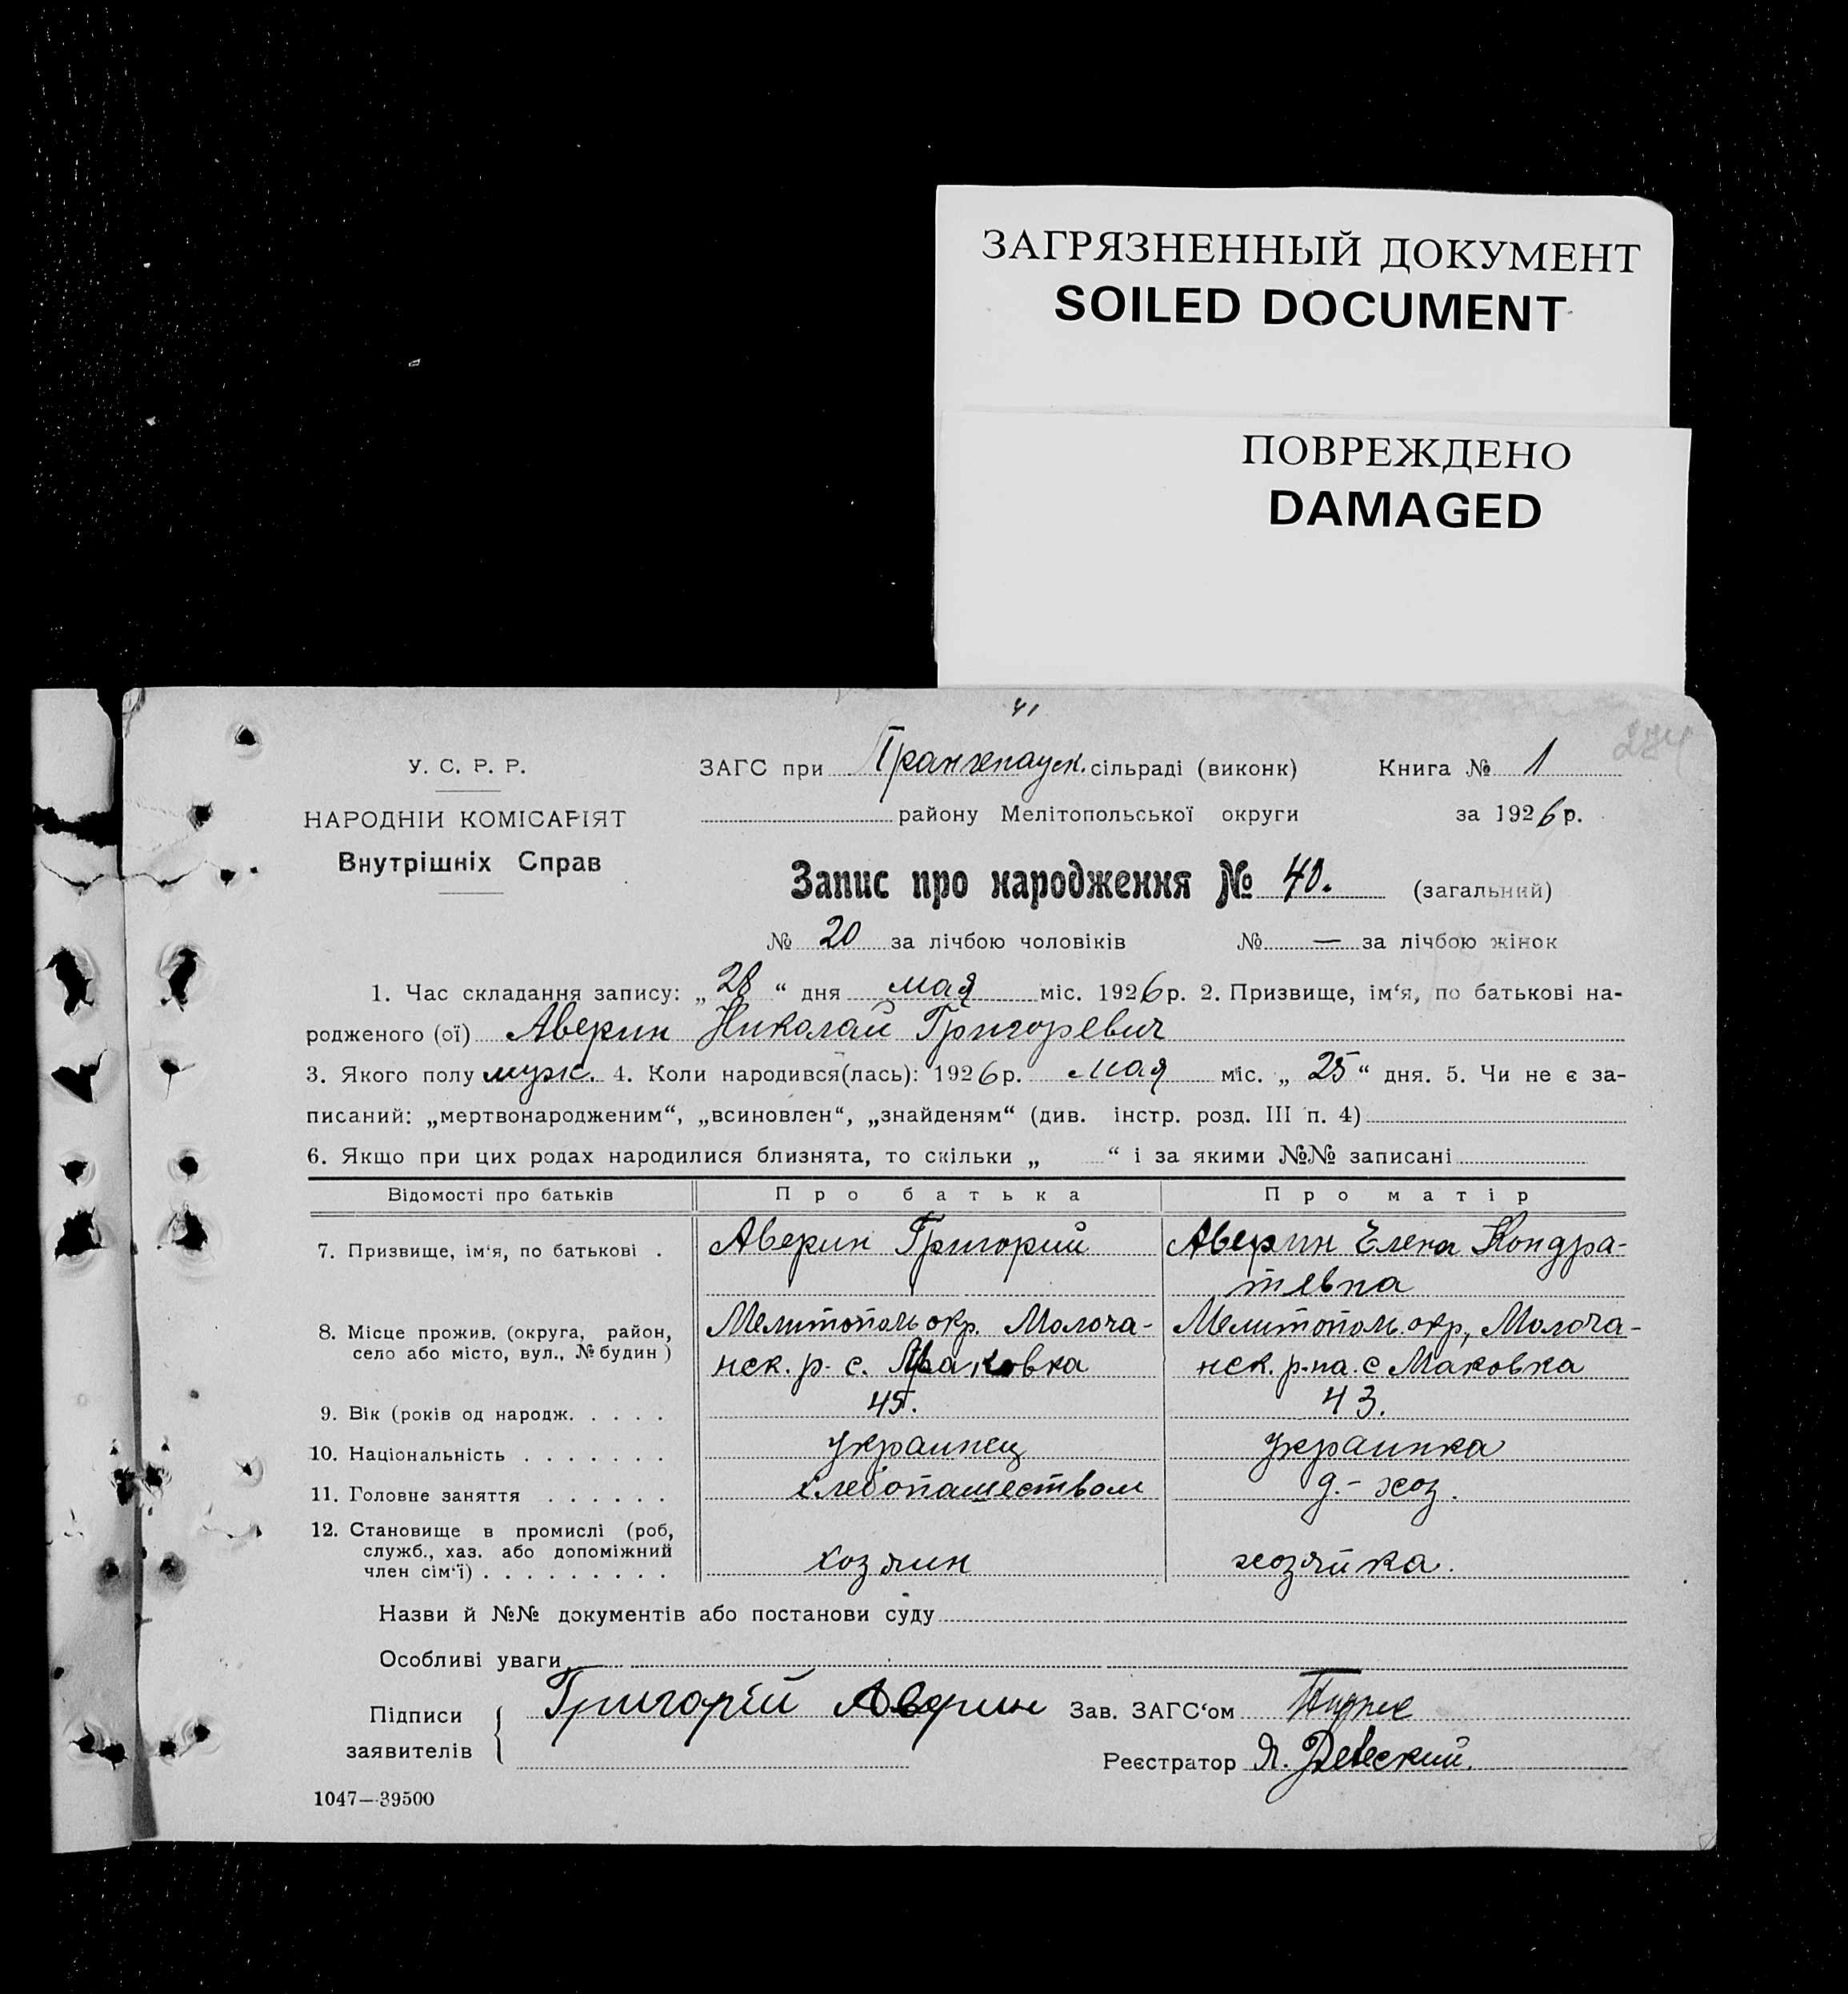 ЗАГРЯЗНЕННЫЙ ДОКУМЕНТ
SOILED DOCUMENT
ПОВРЕЖДЕНО
DAMAGED
41
274
У. С. Р. Р.
ЗАГС при сільраді (виконк) Книга № 1
НАРОДНІЙ КОМІСАРІЯТ
району Мелітопольської округи за 1926 р.
Внутрішніх Справ
Запис про народження № 40. (загальний)
№ 20 за лічбою чоловіків № — за лічбою жінок
1. Час складання запису: „ 28 “ дня мая міс. 1926 р. 2. Призвище, ім‘я, по батькові на-
родженого (ої) Аверин Николай Григоревич
3. Якого полу муж. 4. Коли народився(лась): 1926 р. мая міс. „ 25 “ дня. 5. Чи не є за-
писаний: „мертвонародженим“, „всиновлен“, „знайденям“ (див. інстр. розд. III п. 4)
6. Якщо при цих родах народилися близнята, то скільки „ “ і за якими №№ записані
Відомості про батьків Про батька Про матір
7. Призвище, ім‘я, по батькові . Аверин Григорий Аверин Елена Кондра-
тевна
8. Місце прожив. (округа, район, Мелитополь окр. Молоча- Мелитополь. окр, Молоча-
село або місто, вул., № будин) нск. р- с. Маковка нск. р-на. с Маковка
9. Вік (років од народж. . . . . 45. 43.
10. Національність . . . . . . . украинец украинка
11. Головне заняття . . . . . . хлебопашеством д.- хоз.
12. Становище в промислі (роб,
служб., хаз. або допоміжний
член сім‘ї) . . . . . . . . . хозяин хозяйка.
Назви й №№ документів або постанови суду
Особливі уваги
Підписи Григорій Аверин Зав. ЗАГС‘ом
заявителів Реєстратор Я.
1047—39500